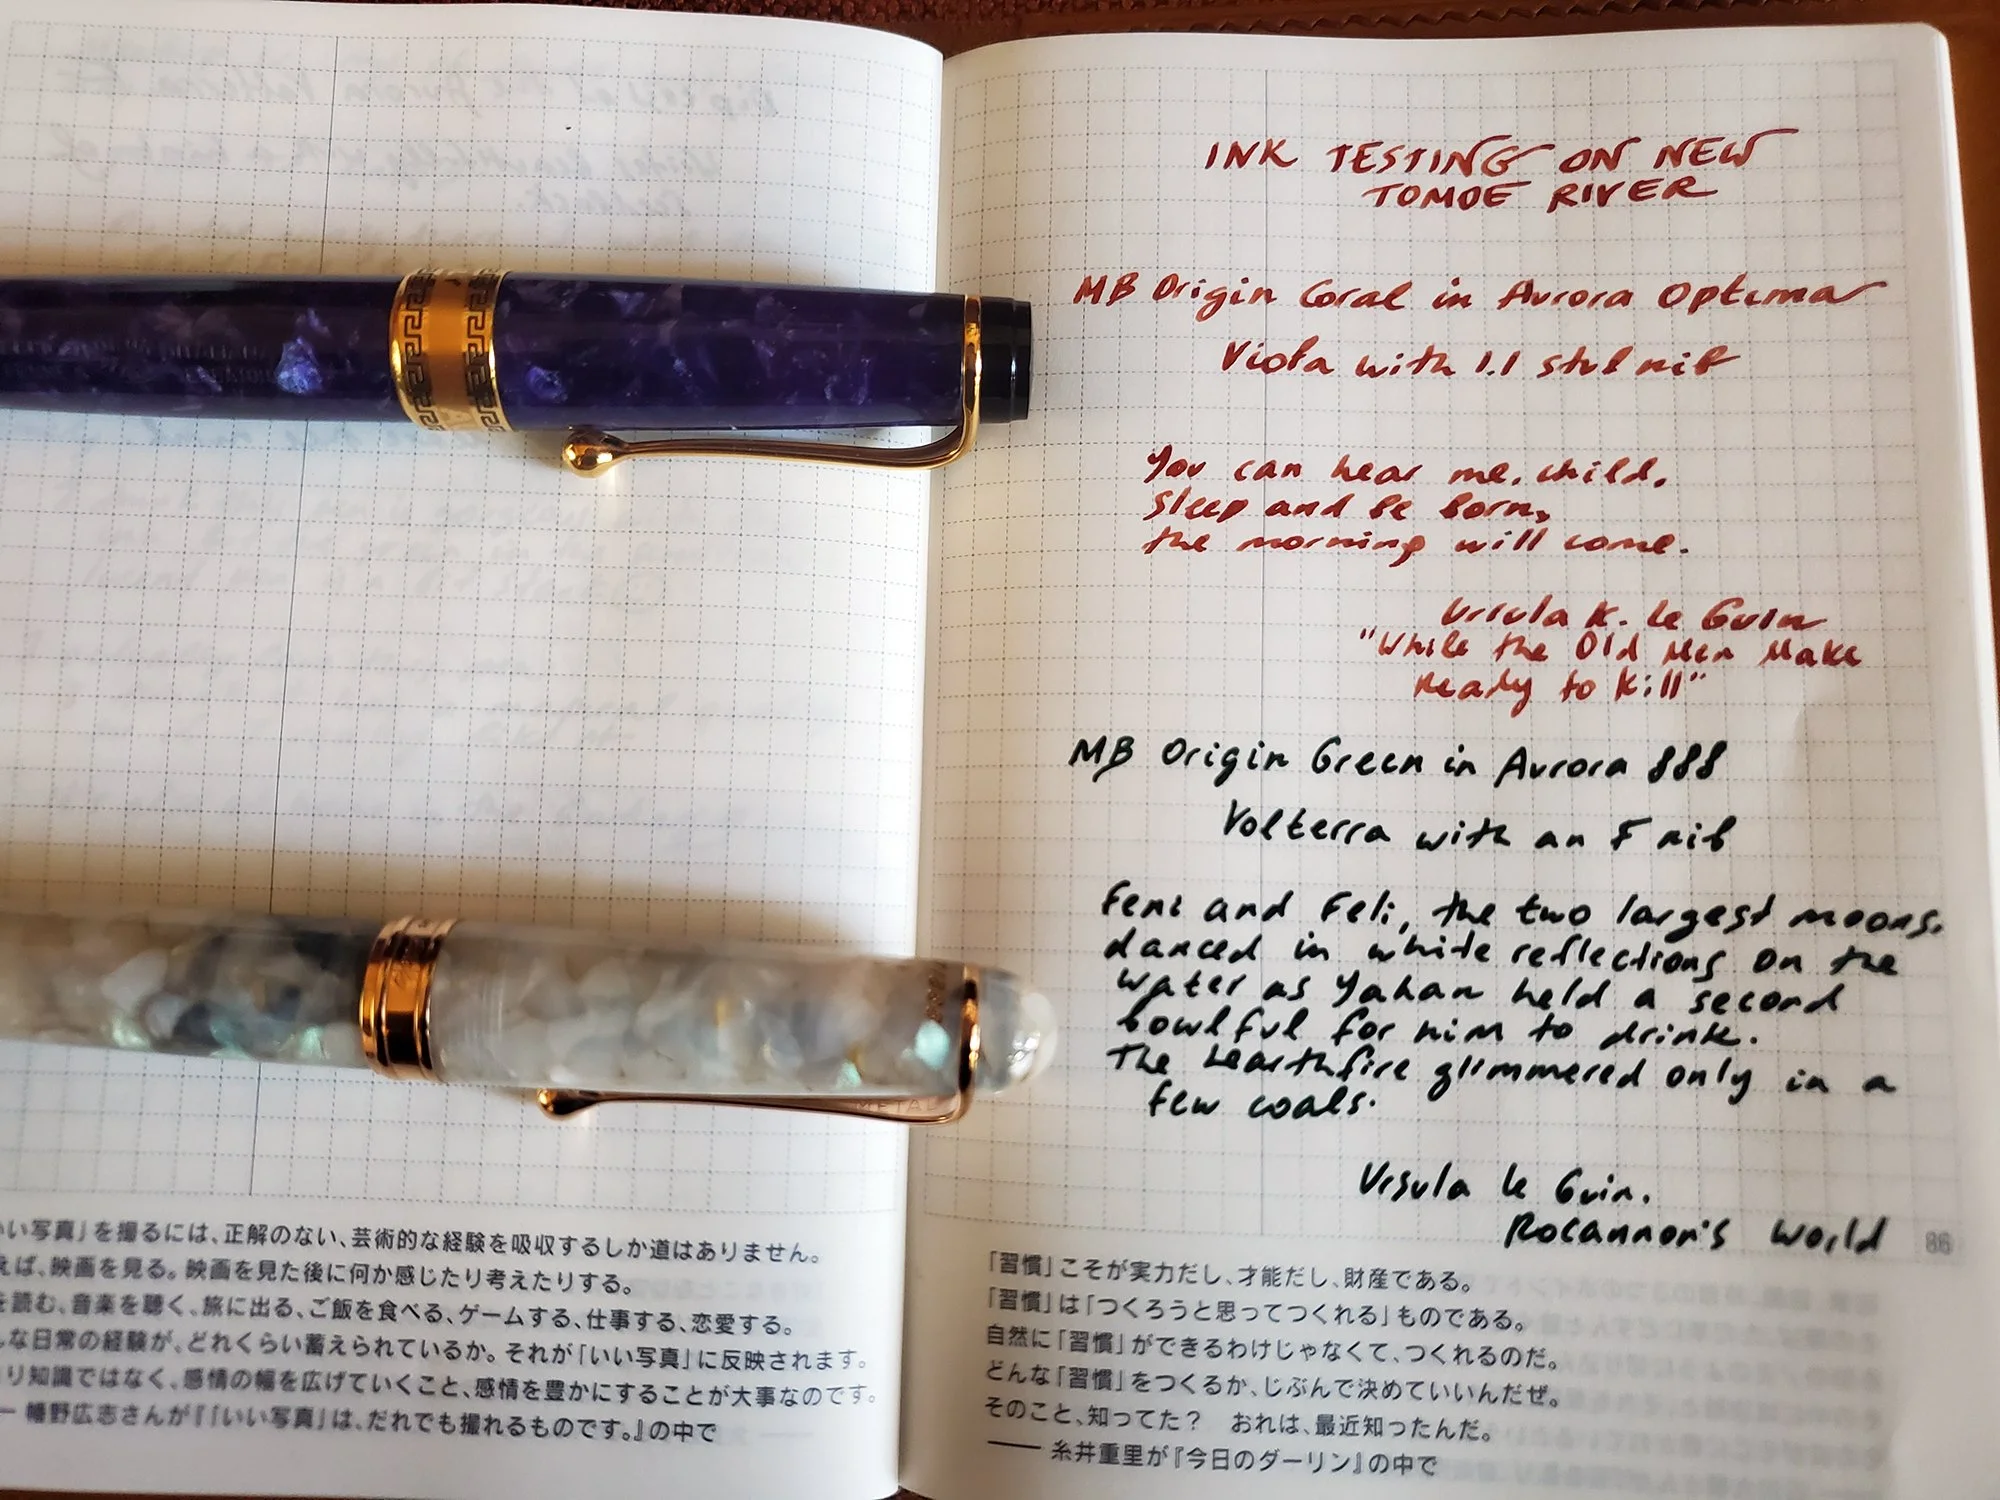 INK TESTING ON NEW
TOMOE RIVER
MB Origin Coral in Aurora Optima
Viola with 1.1 stub nib
You can hear me, child.
Sleep and be born,
the morning will come.
Ursula K. Le Guin
"While the Old Men Make
Ready to Kill"
MB Origin Green in Aurora 888
Volterra with an F nib
Feni and Feli, the two largest moons,
danced in white reflections on the
water as Yahan held a second
bowlful for him to drink.
The hearthfire glimmered only in a
few coals.
Ursula le Guin.
Rocannon's World
86
いい写真」を撮るには、正解のない、芸術的な経験を吸収するしか道はありません。
えば、映画を見る。映画を見た後に何か感じたり考えたりする。
を読む、音楽を聴く、旅に出る、ご飯を食べる、ゲームする、仕事する、恋愛する。
な日常の経験が、どれくらい蓄えられているか。それが「いい写真」に反映されます。
り知識ではなく、感情の幅を広げていくこと、感情を豊かにすることが大事なのです。
— 幡野広志さんが『「いい写真」は、だれでも撮れるものです。』の中で
「習慣」こそが実力だし、才能だし、財産である。
「習慣」は「つくろうと思ってつくれる」ものである。
自然に「習慣」ができるわけじゃなくて、つくれるのだ。
どんな「習慣」をつくるか、じぶんで決めていいんだぜ。
そのこと、知ってた？　おれは、最近知ったんだ。
—— 糸井重里が『今日のダーリン』の中で